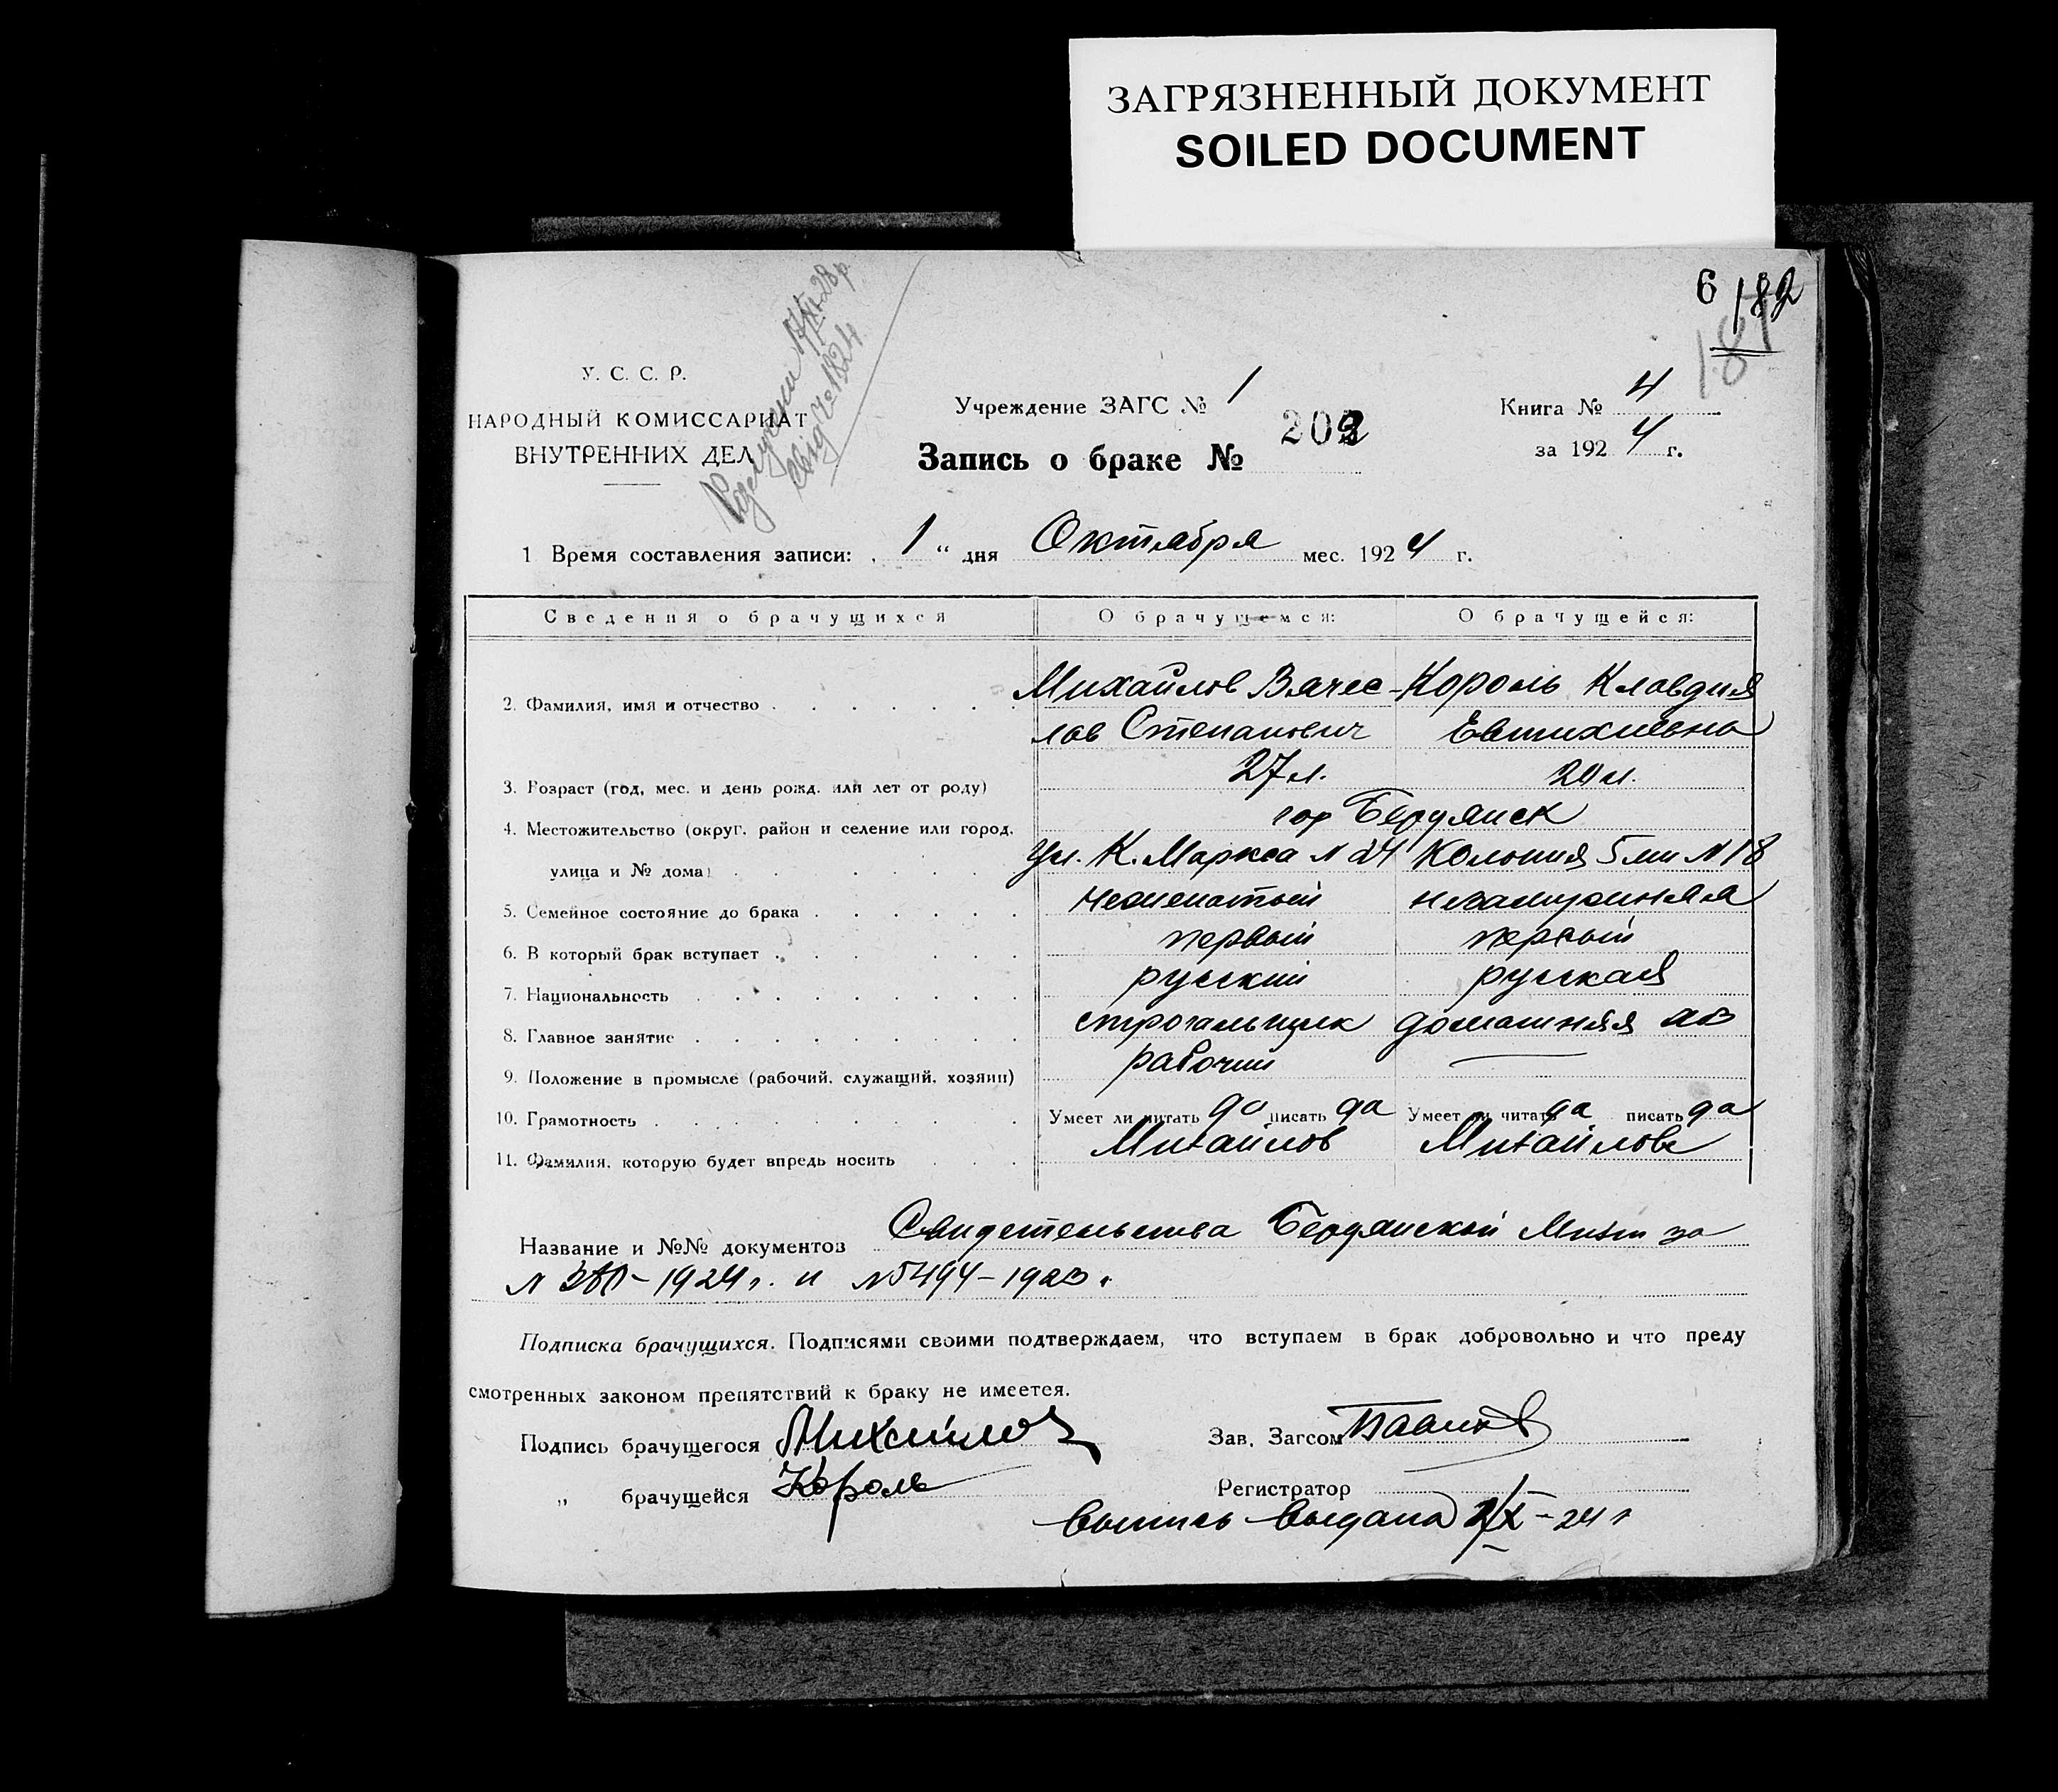 ЗАГРЯЗНЕННЫЙ ДОКУМЕНТ
SOILED DOCUMENT
6 182
181
У. С. С. Р.
НАРОДНЫЙ КОМИССАРИАТ
ВНУТРЕННИХ ДЕЛ
Учреждение ЗАГС № 1
Запись о браке № 202
Книга № 4
за 1924 г.
1 Время составления записи: 1 " дня Октября мес. 1924 г.
Сведения о брачущихся О брачущемся: О брачущейся:
2. Фамилия, имя и отчество Михайлов Вячес- Король Клавдия
лав Степанович Евтихиевна
3. Возраст (год, мес. и день рожд. или лет от роду) 27 л. 20 л.
4. Местожительство (округ, район и селение или город, гор Бердянск
улица и № дома) Ул. К. Маркса N 24 Колония 5 N 18
5. Семейное состояние до брака неженатый незамужняя
6. В который брак вступает первый первый
7. Национальность русский русская
8. Главное занятие строгальщик домашняя
9. Положение в промысле (рабочий, служащий, хозяин) рабочий —
10. Грамотность Умеет ли читать да писать да Умеет ли читать да писать да
11. Фамилия, которую будет впредь носить Михайлов Михайлова
Название и №№ документов Свидетельства Бердянской за
N - 1924 г. и N 5494 - 1923 г.
Подписка брачущихся. Подписями своими подтверждаем, что вступаем в брак добровольно и что преду
смотренных законом препятствий к браку не имеется.
Подпись брачущегося Михайлов Зав. Загсом
„ брачущейся Король Регистратор
выпись выдана 1/X - 24 г